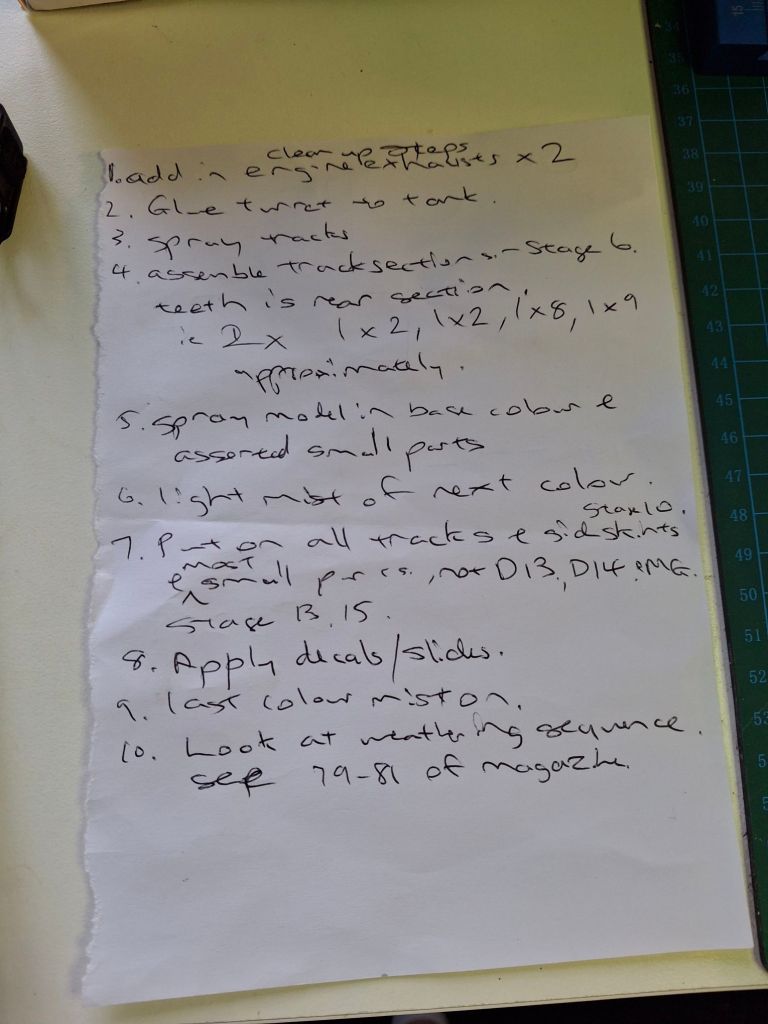 clean up steps
1. add in engine exhausts x 2
2. Glue turret to tank.
3. spray tracks
4. assemble track sections. - Stage 6.
teeth is rear section.
ie 2 x 1 x 2, 1 x 2, 1 x 8, 1 x 9
approximately.
5. spray model in base colour &
assorted small parts
6. light mist of next colour.
Stage 10.
7. Put on all tracks & sideskirts
most
& ^ small parts, not D13, D14 & MG.
Stage 13, 15.
8. Apply decals/slides.
9. last colour mist on.
10. Look at weathering sequence.
see 79-81 of magazine.
34
35
36
37
38
39
40
41
42
43
44
45
46
47
48
49
50
51
52
15